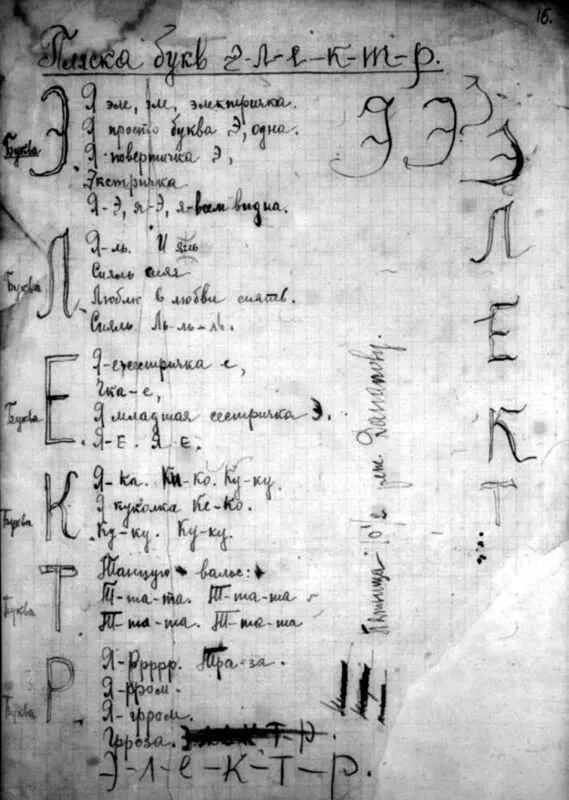 16.
Пляска букв э-л-е-к-т-р.
Буква Э
Я эле, эле, электричка.
Я просто буква Э, одна.
Я повертичка Э,
Экстричка
Я-Э, я-Э, я-всем видна.
Буква Л
Я-ль. И
Сияль сияя
Люблю в любви сиять.
Сияль Ль-ль-ль.
Буква Е
Я-сестричка е,
Чка-е,
Я младшая сестричка Э.
Я-Е. Я-Е.
Буква К
Я-ка. Ки-ко. Ку-ку.
Я куколка Ке-Ко.
Ку-ку. Ку-ку.
Буква Т
Танцую вальс:
Т-та-та. Т-та-та
Т-та-та. Т-та-та
Буква Р
Я-Ррррр. Тра-за.
Я-рром.
Я-грром.
Грроза.
Э-л-е-к-т-р.
Э Э
Э
Э
Л
Е
К
Т
Пятница